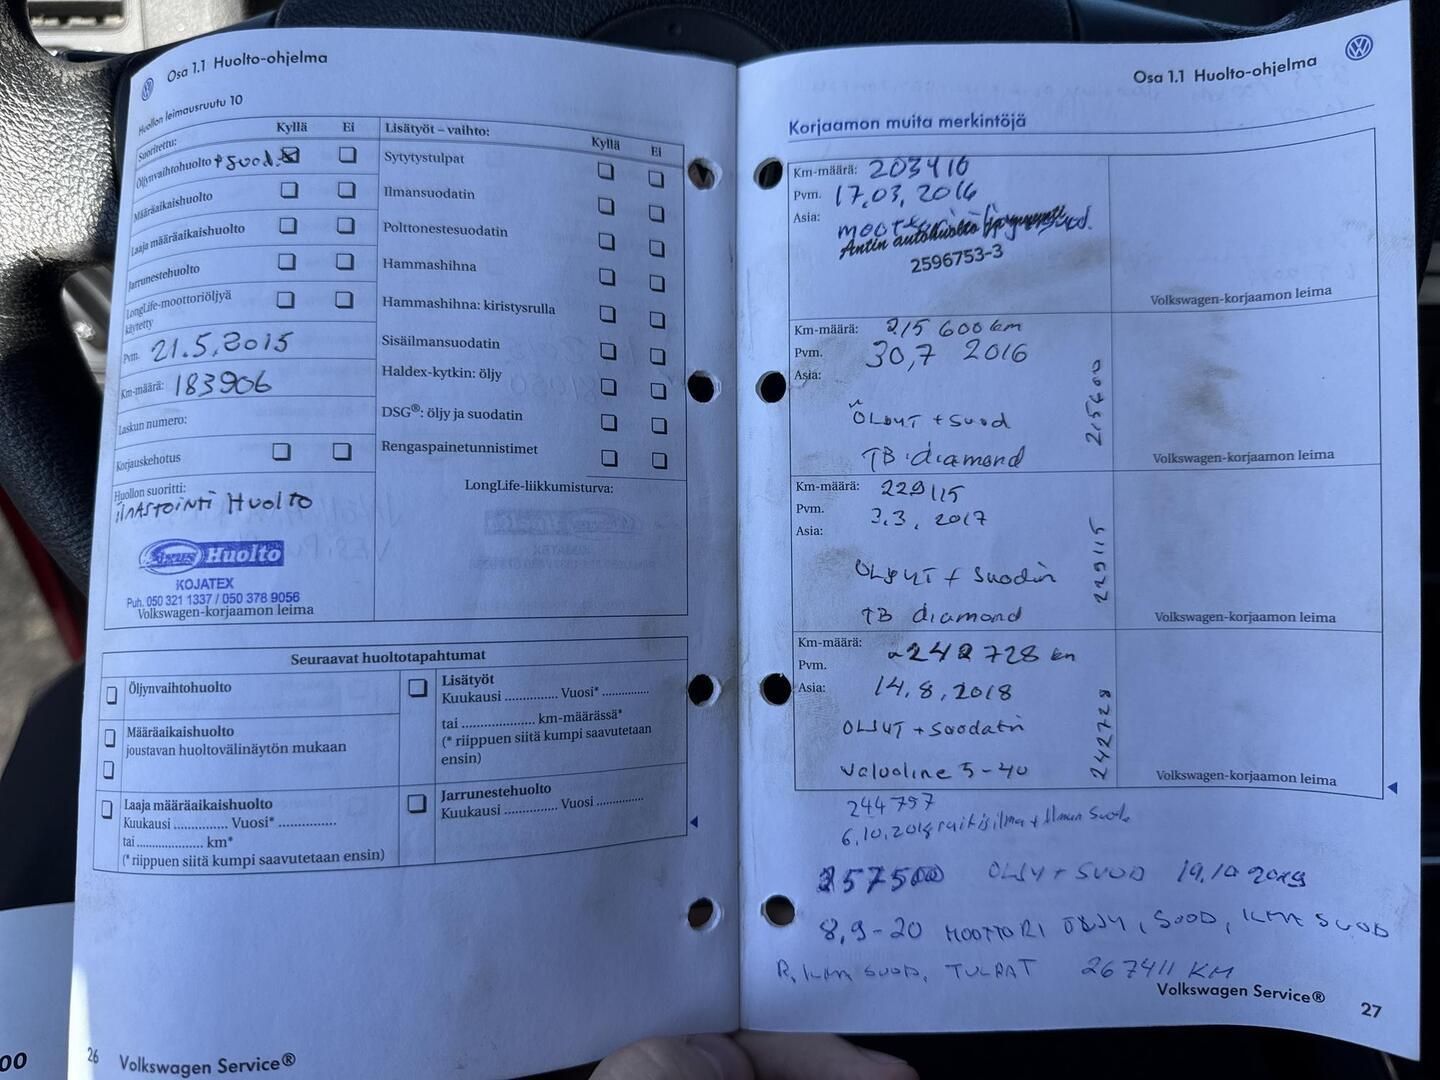 Osa 1.1 Huolto-ohjelma
Huollon leimausruutu 10
Suoritettu:
Kyllä
Ei
Öljynvaihtohuolto + suod.
Määräaikaishuolto
Laaja määräaikaishuolto
Jarrunestehuolto
LongLife-moottoriöljyä
käytetty
Pvm. 21.5.2015
Km-määrä: 183906
Laskun numero:
Korjauskehotus
Huollon suoritti:
ilmastointi Huolto
Huolto
KOJATEX
Puh. 050 321 1337 / 050 378 9056
Volkswagen-korjaamon leima
Lisätyöt – vaihto:
Kyllä
Ei
Sytytystulpat
Ilmansuodatin
Polttonestesuodatin
Hammashihna
Hammashihna: kiristysrulla
Sisäilmansuodatin
Haldex-kytkin: öljy
DSG®: öljy ja suodatin
Rengaspainetunnistimet
LongLife-liikkumisturva:
Seuraavat huoltotapahtumat
Öljynvaihtohuolto
Määräaikaishuolto
joustavan huoltovälinäytön mukaan
Laaja määräaikaishuolto
Kuukausi .............. Vuosi* ..............
tai .................... km*
(* riippuen siitä kumpi saavutetaan ensin)
Lisätyöt
Kuukausi .............. Vuosi* ..............
tai .................... km-määrässä*
(* riippuen siitä kumpi saavutetaan
ensin)
Jarrunestehuolto
Kuukausi ............ Vuosi ..............
26 Volkswagen Service®
00
Osa 1.1 Huolto-ohjelma
Korjaamon muita merkintöjä
Km-määrä: 203416
Pvm. 17.03.2016
Asia:
Antin autohuolto
2596753-3
Volkswagen-korjaamon leima
Km-määrä: 215 600 km
Pvm. 30,7 2016
Asia:
ÖLJYT + suod
TB diamond
215600
Volkswagen-korjaamon leima
Km-määrä: 229115
Pvm. 3.3, 2017
Asia:
ÖLJYT + suodin
TB diamond
229115
Volkswagen-korjaamon leima
Km-määrä: 242 728 km
Pvm.
Asia: 14.8.2018
OLJYT + suodatin
valvoline 5-40
242728
Volkswagen-korjaamon leima
244797
6.10.2018 raitisilma + ilman suod.
257500 OLJY + SUOD 19.10 2019
8,9-20 MOOTTORI ÖLJY, SUOD, ILM SUOD
R. ILM SUOD, TULPAT 267411 KM
Volkswagen Service®
27